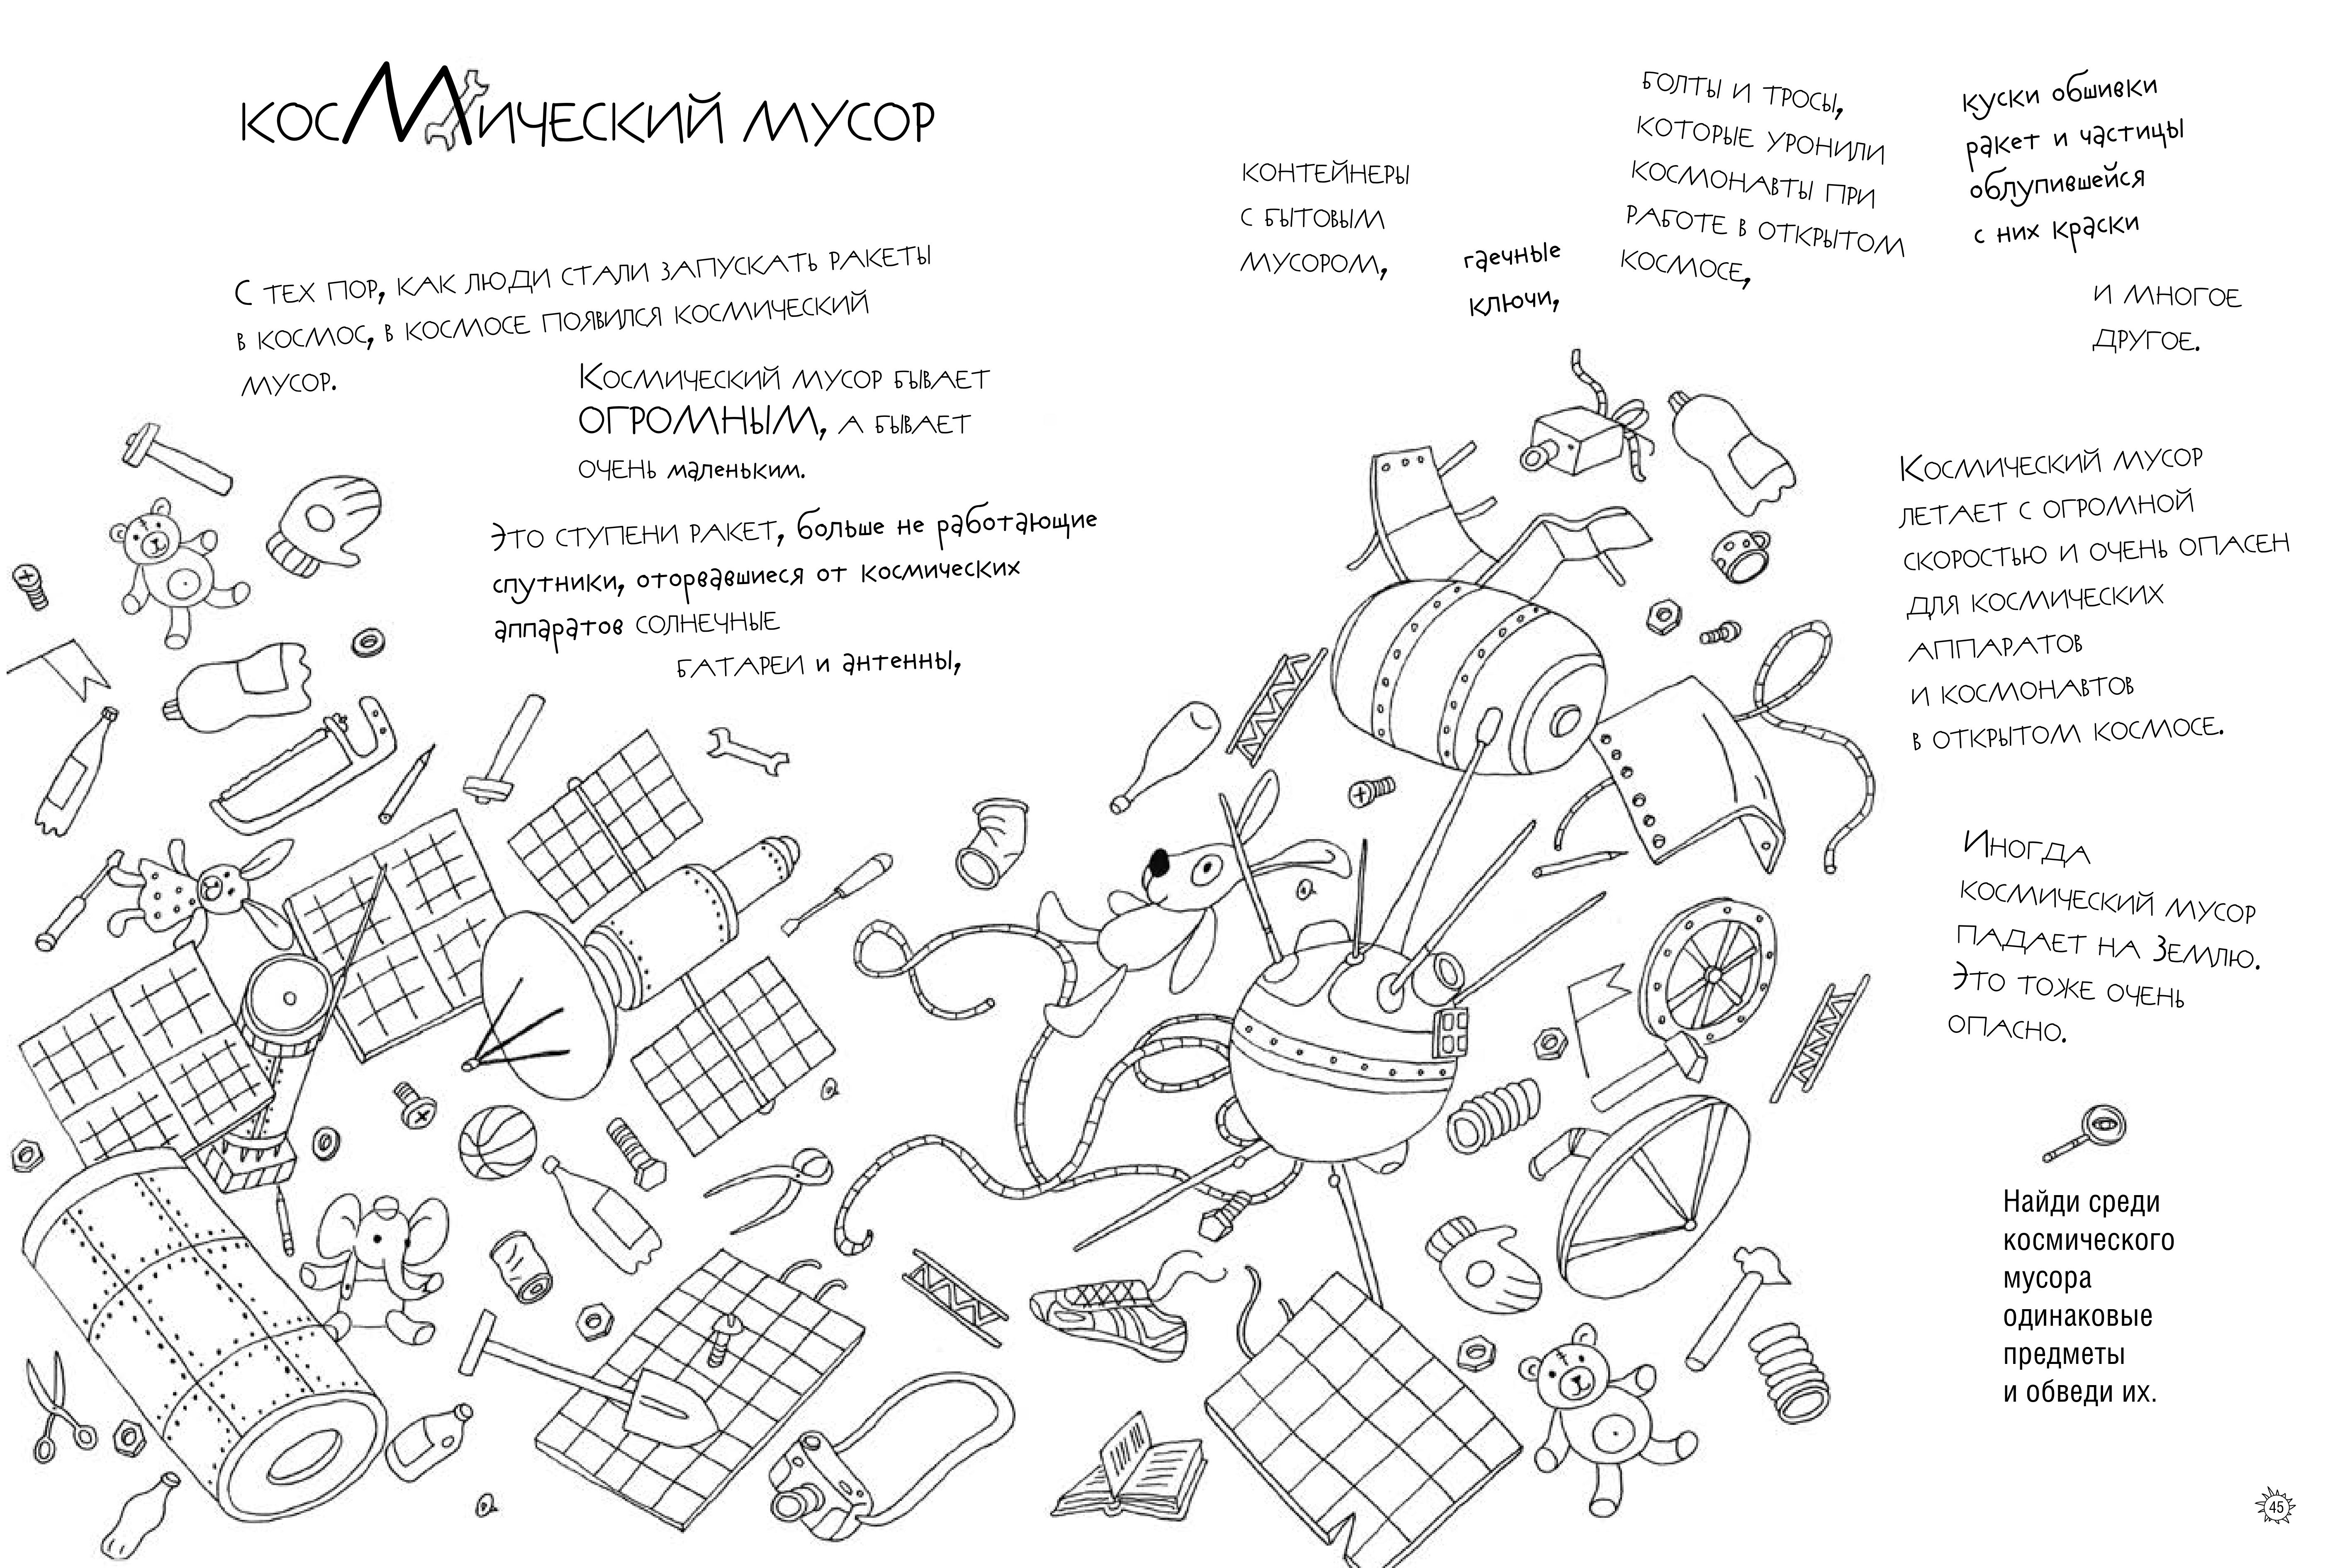 КОСМИЧЕСКИЙ МУСОР
С ТЕХ ПОР, КАК ЛЮДИ СТАЛИ ЗАПУСКАТЬ РАКЕТЫ
В КОСМОС, В КОСМОСЕ ПОЯВИЛСЯ КОСМИЧЕСКИЙ
МУСОР.
КОСМИЧЕСКИЙ МУСОР БЫВАЕТ
ОГРОМНЫМ, А БЫВАЕТ
ОЧЕНЬ маленьким.
ЭТО СТУПЕНИ РАКЕТ, больше не работающие
спутники, оторвавшиеся от космических
аппаратов СОЛНЕЧНЫЕ
БАТАРЕИ и антенны,
КОНТЕЙНЕРЫ
С БЫТОВЫМ
МУСОРОМ,
гаечные
ключи,
БОЛТЫ И ТРОСЫ,
КОТОРЫЕ УРОНИЛИ
КОСМОНАВТЫ ПРИ
РАБОТЕ В ОТКРЫТОМ
КОСМОСЕ,
куски обшивки
ракет и частицы
облупившейся
с них краски
И МНОГОЕ
ДРУГОЕ.
КОСМИЧЕСКИЙ МУСОР
ЛЕТАЕТ С ОГРОМНОЙ
СКОРОСТЬЮ И ОЧЕНЬ ОПАСЕН
ДЛЯ КОСМИЧЕСКИХ
АППАРАТОВ
И КОСМОНАВТОВ
В ОТКРЫТОМ КОСМОСЕ.
ИНОГДА
КОСМИЧЕСКИЙ МУСОР
ПАДАЕТ НА ЗЕМЛЮ.
ЭТО ТОЖЕ ОЧЕНЬ
ОПАСНО.
Найди среди
космического
мусора
одинаковые
предметы
и обведи их.
45